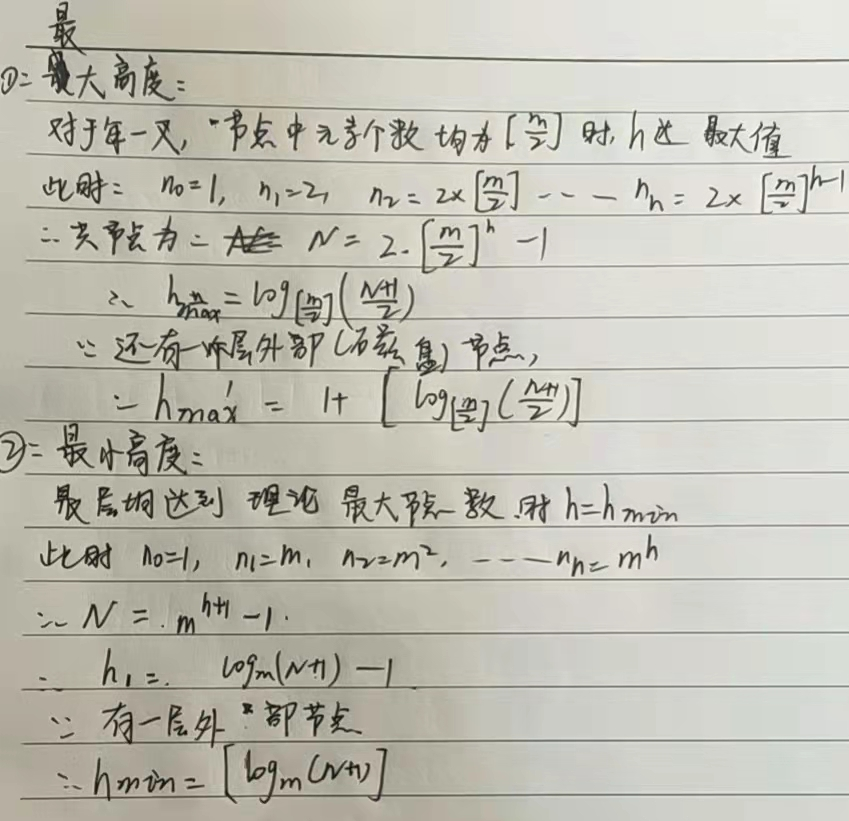 最
①: 最大高度:
对于每一叉, 节点中元素个数均为[m/2]时, h达最大值
此时: n₀=1, n₁=2, n₂=2×[m/2] --- nₕ=2×[m/2]^(h-1)
∴ 共节点为: N=2·[m/2]^h -1
∴ h_max=log_[m/2]((N+1)/2)
∵ 还有一层外部()节点,
∴ h_max'=1+[log_[m/2]((N+1)/2)]
②: 最小高度:
层均达到理论最大节点数时 h=h_min
此时 n₀=1, n₁=m, n₂=m², ---- nₕ=m^h
∴ N=m^(h+1)-1.
∴ h₁= log_m(N+1)-1
∵ 有一层外部节点
∴ h_min=[log_m(N+1)]